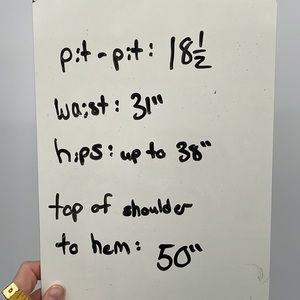 pit-pit: 18 1/2
waist: 31"
hips: up to 38"
top of shoulder
to hem: 50"